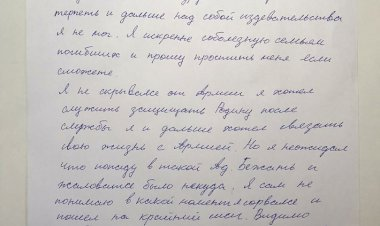 терпеть и дальше над собой издевательства
я не мог. Я искренне соболезную семьям
погибших и прошу простить меня если
сможете.
Я не скрывался от Армии я хотел
служить защищать Родину после
службы я и дальше хотел связать
свою жизнь с Армией. Но я неожидал
что попаду в такой Ад. Бежать и
жаловаться было некуда, Я сам не
понимаю в какой момент я сорвался и
пошел на крайний шаг. Видимо